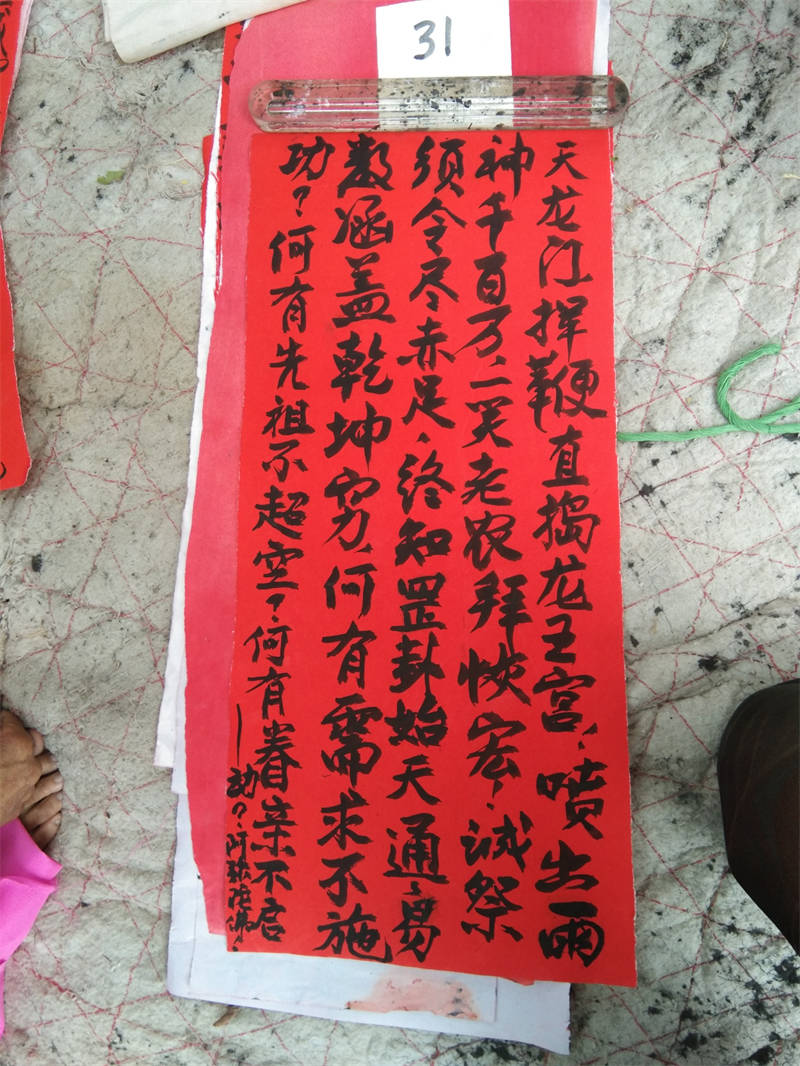 31
天龙门挥鞭直捣龙王宫、喷出雨
神千百万、一笑老农拜恢宏、诚祭
须令尽赤足、终知罡卦始天通、易
数涵盖乾坤穷、何有需求不施
功？何有先祖不超空？何有眷亲不启
功？阿弥陀佛、